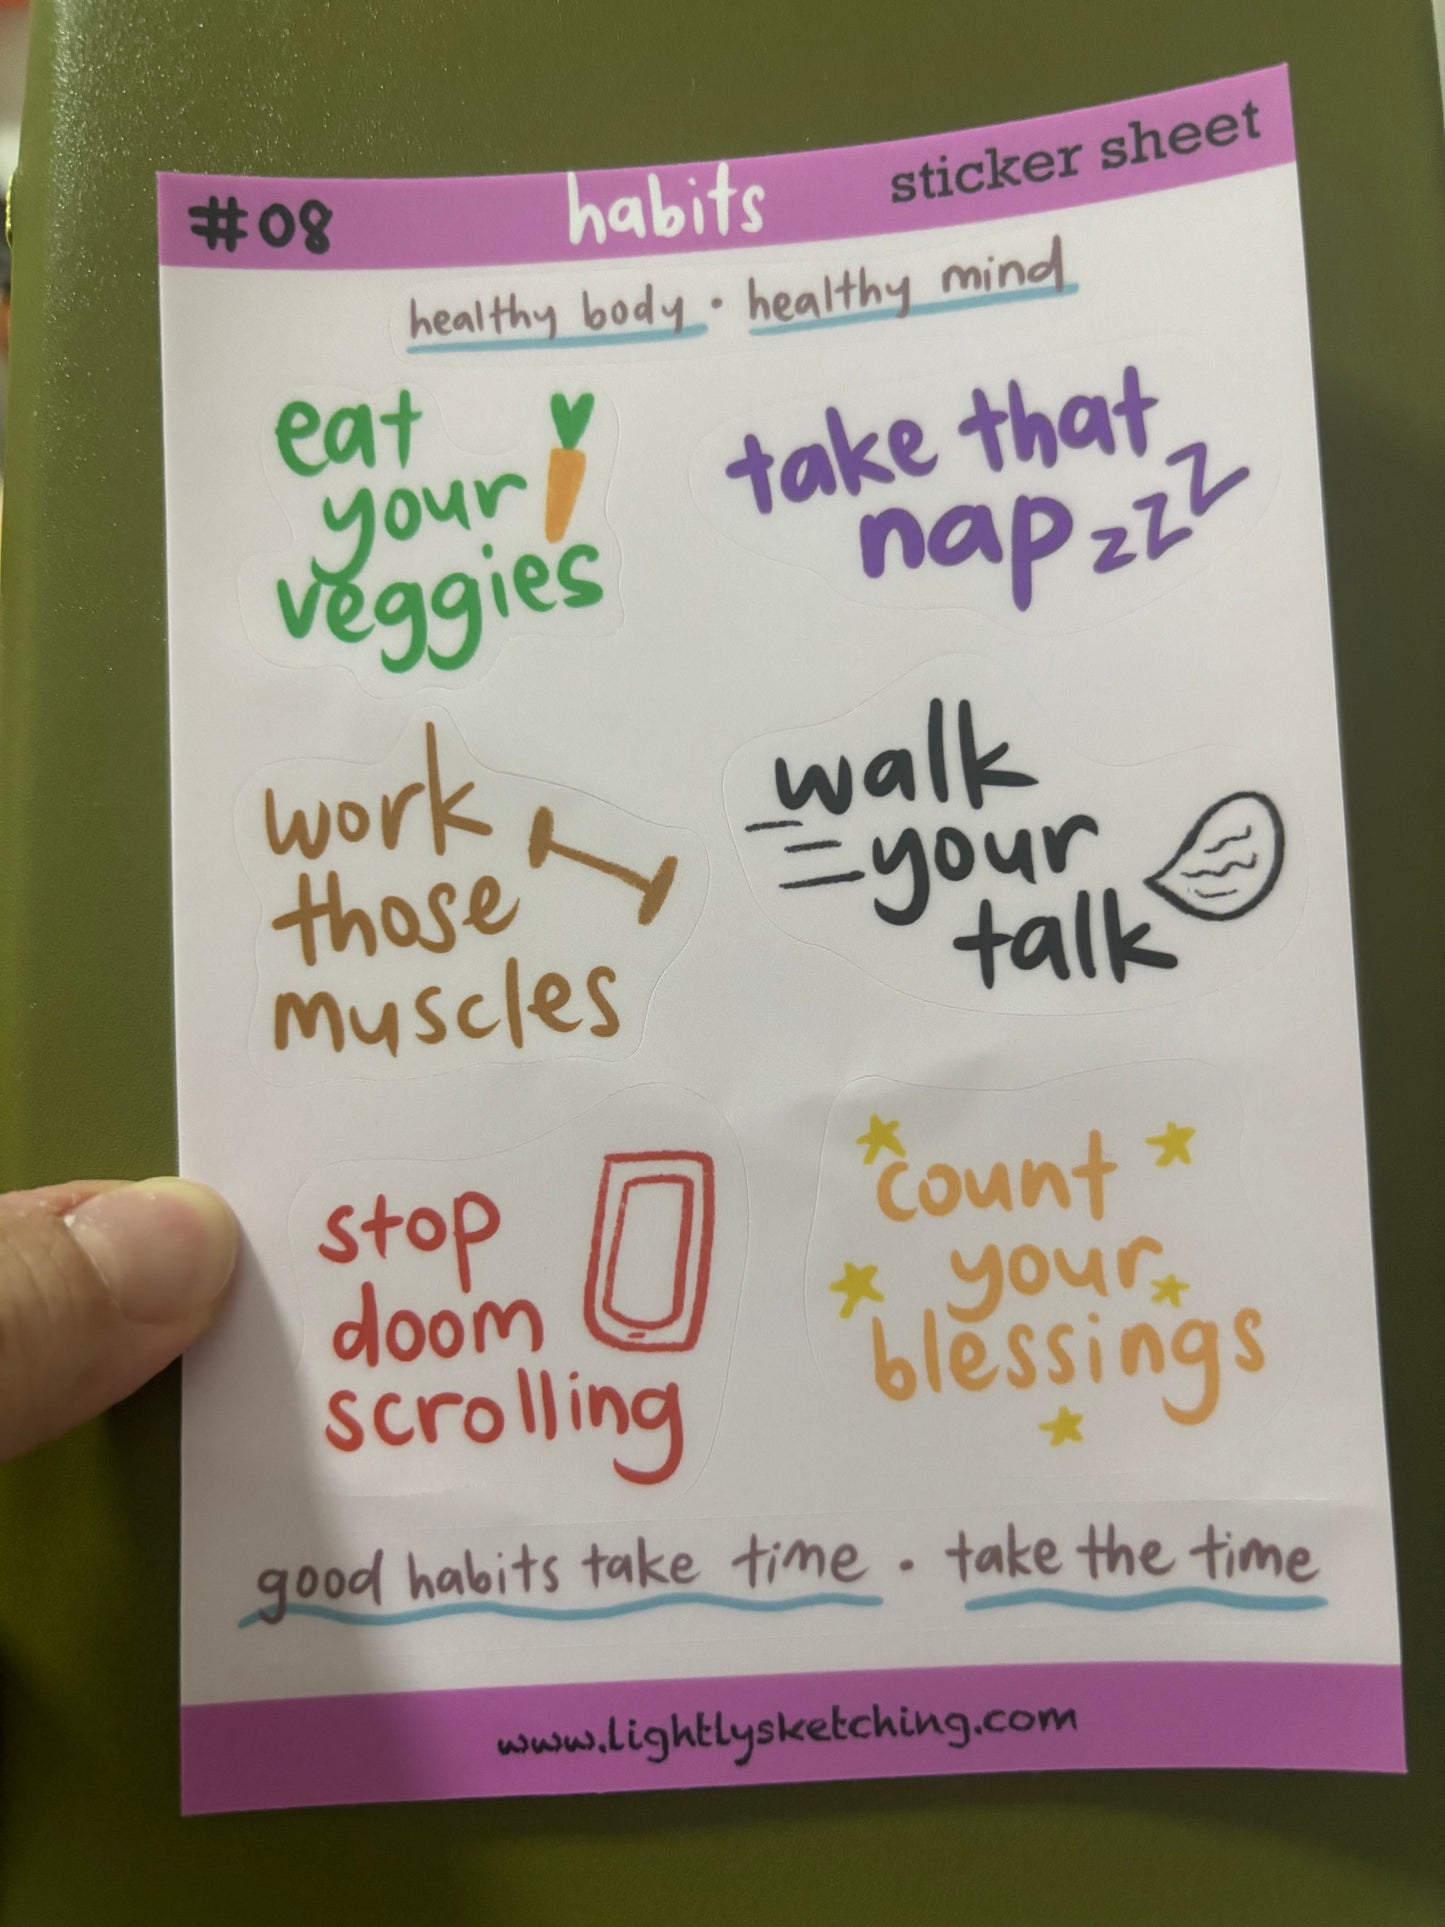 #08 habits sticker sheet
healthy body · healthy mind
eat
your
veggies
take that
nap zzz
work
those
muscles
walk
your
talk
stop
doom
scrolling
count
your
blessings
good habits take time · take the time
www.lightlysketching.com